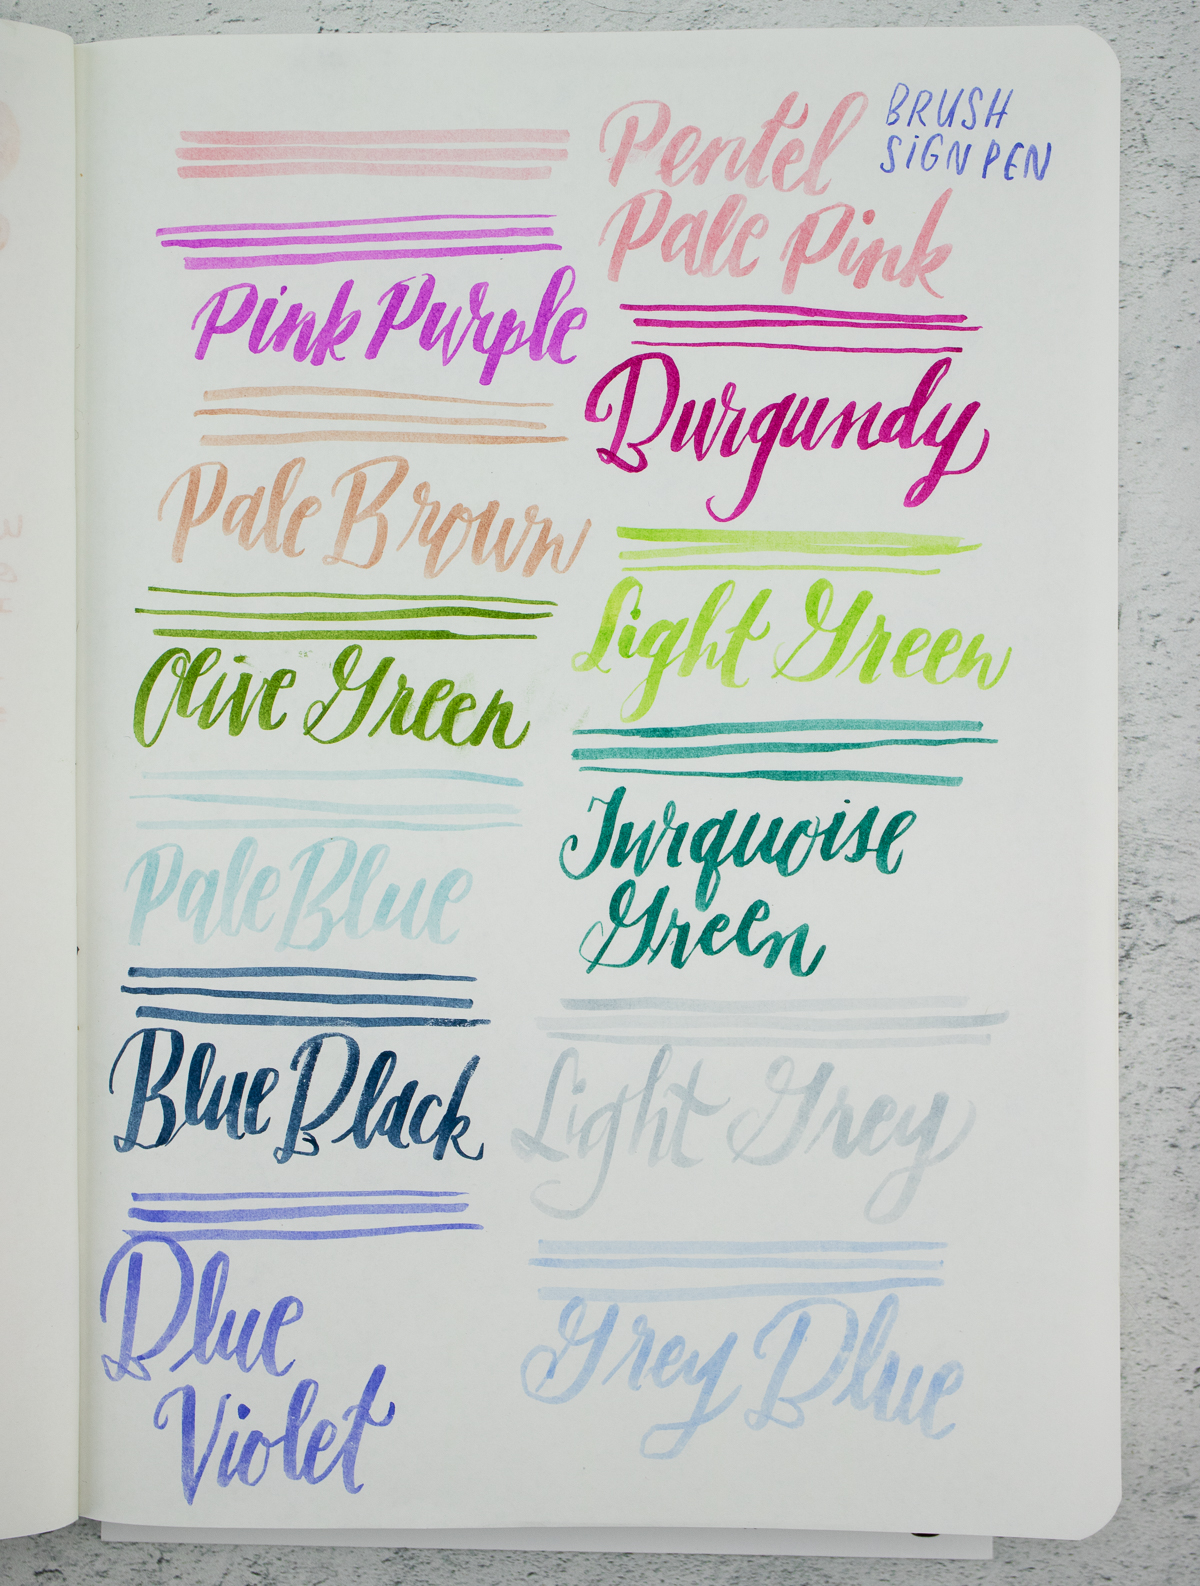 Pentel
BRUSH
SIGN PEN
Pale Pink
Pink Purple
Burgundy
Pale Brown
Light Green
Olive Green
Turquoise
Green
Pale Blue
Light Grey
Blue Black
Grey Blue
Blue
Violet